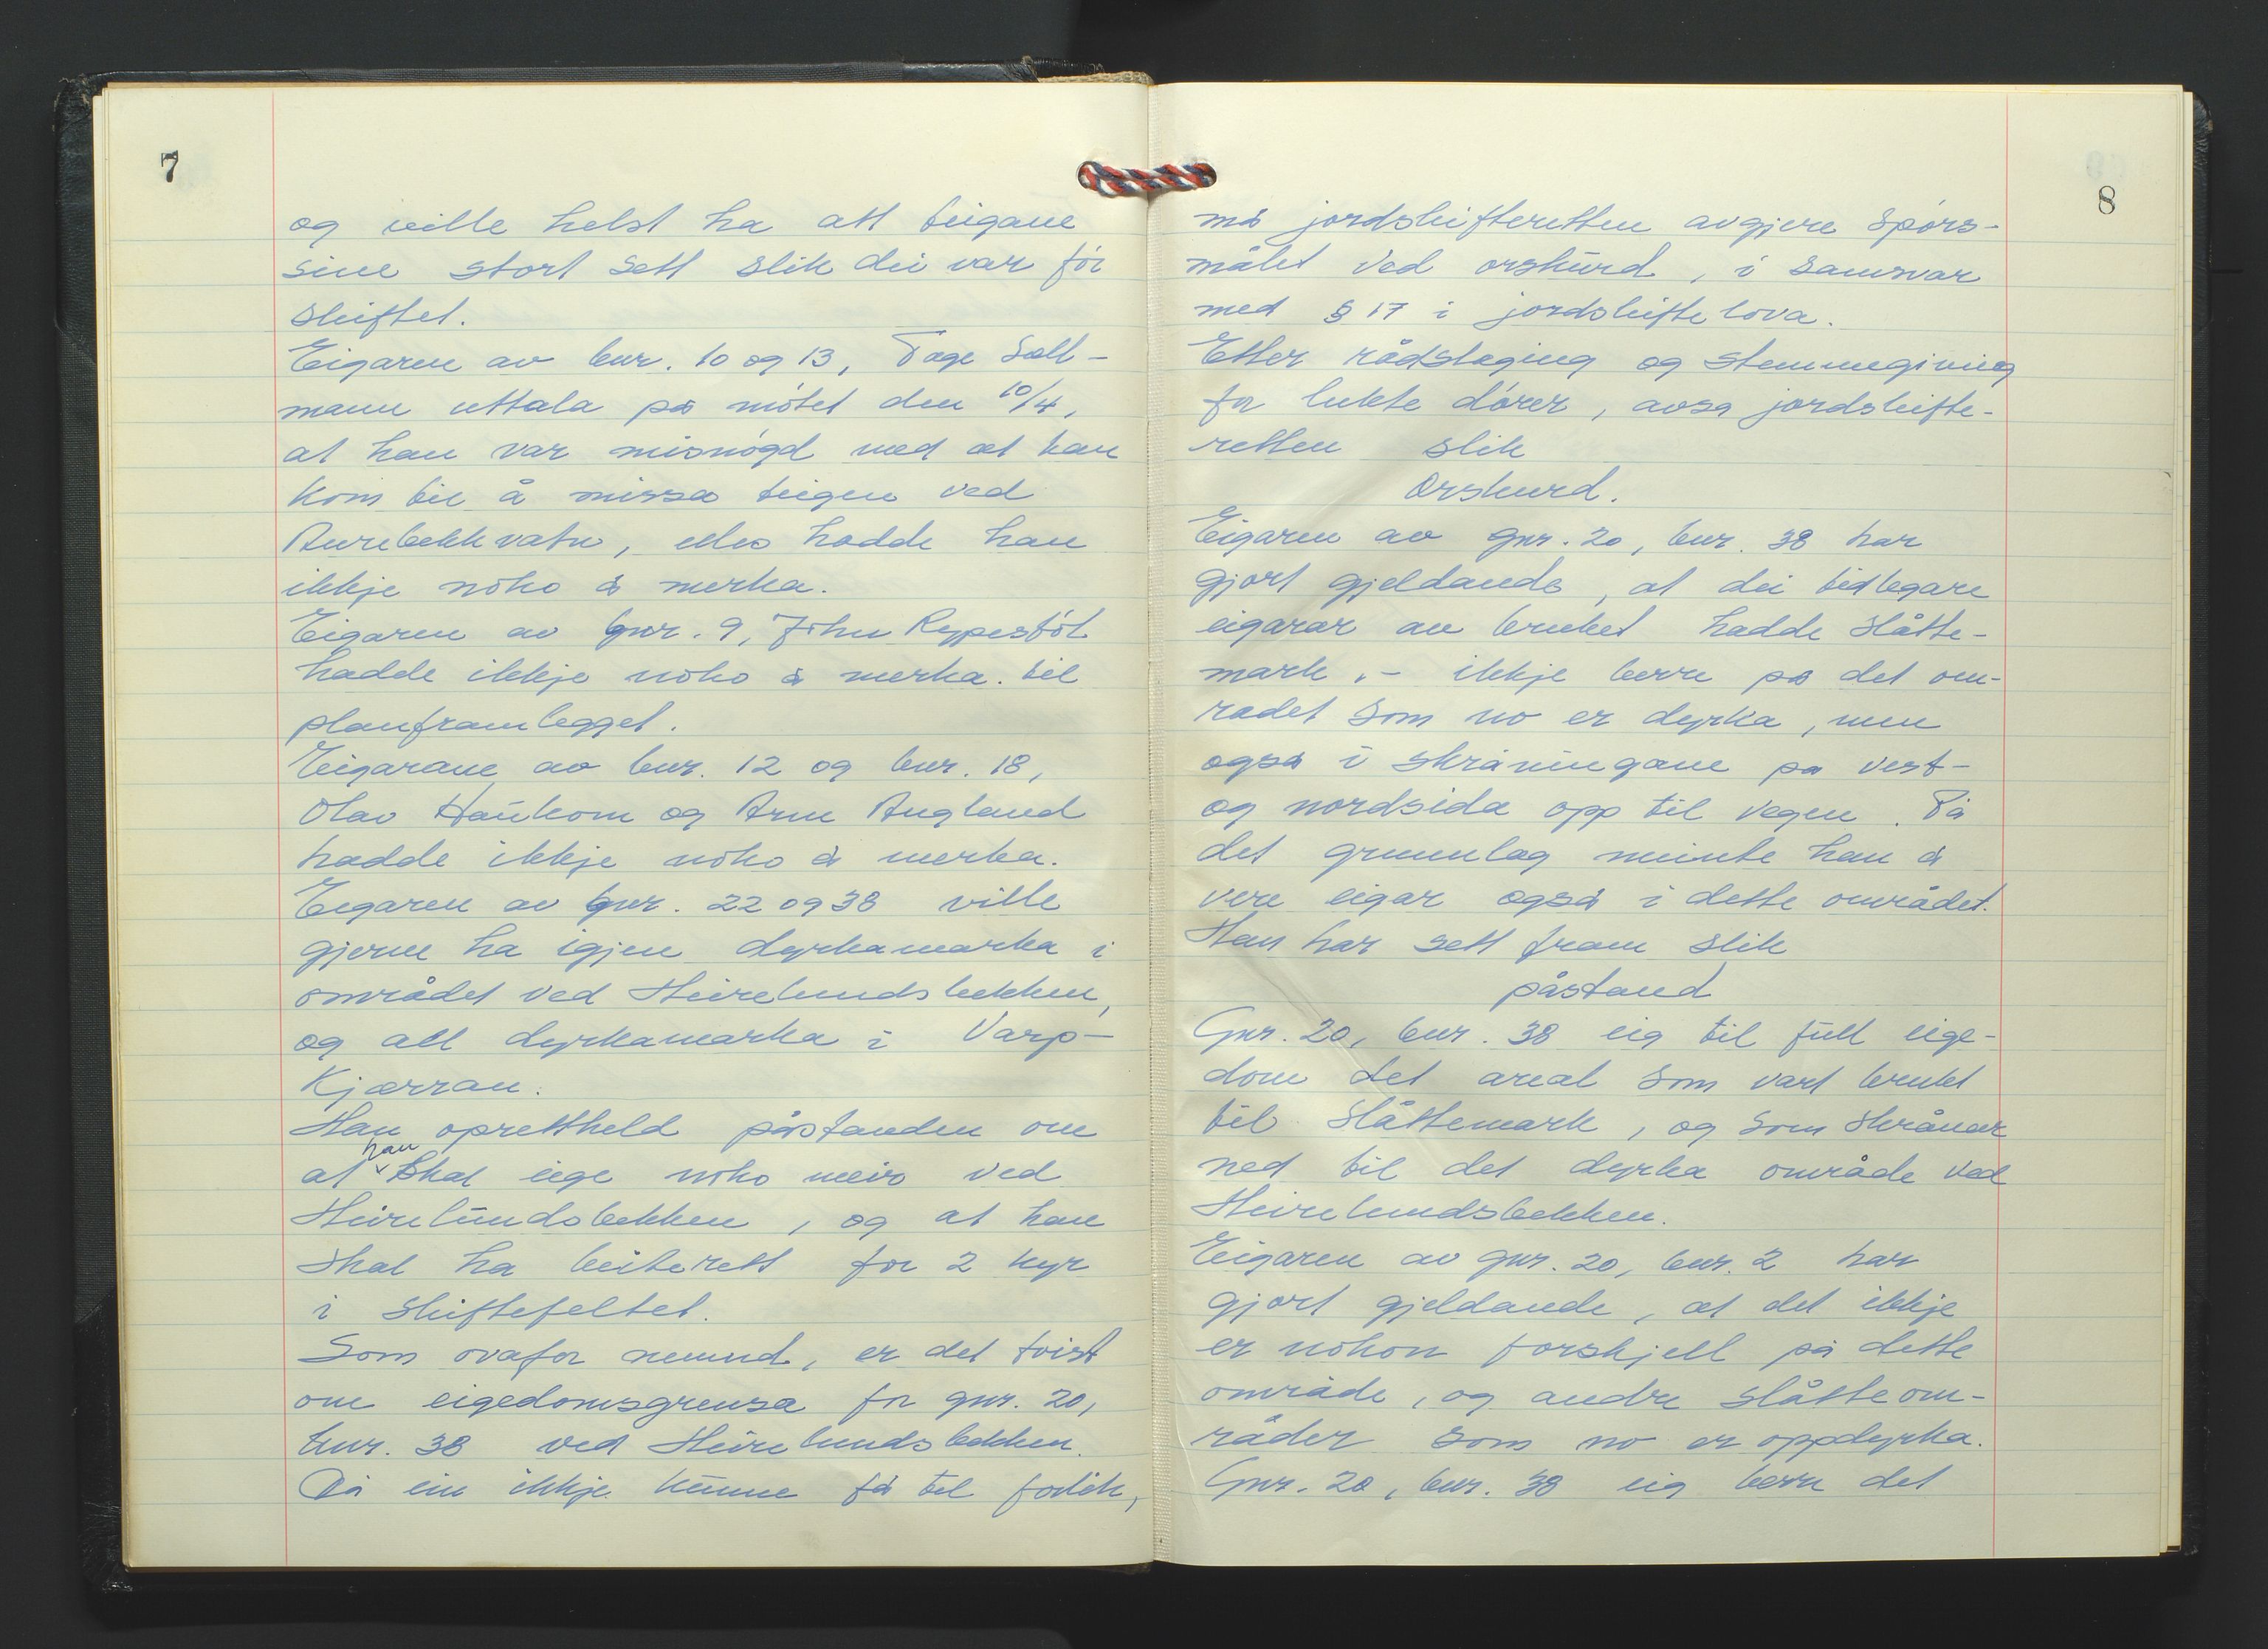 7
og ville helst ha att teigane
sine stort sett slik dei var før
skiftet.
Eigaren av bnr. 10 og 13, Tage Salt-
mann uttala på møtet den 10/4,
at han var misnøgd med at han
kom til å missa teigen ved
Aurebekkvatn, elles hadde han
ikkje noko å merka.
Eigaren av bnr. 9, John Rypestøl
hadde ikkje noko å merka. til
planframlegget.
Eigarane av bnr. 12 og bnr. 18,
Olav Haukom og Arne Augland
hadde ikkje noko å merka.
Eigaren av bnr. 22 og 38 ville
gjerne ha igjen dyrkamarka i
området ved Heirelundsbekken,
og all dyrkamarka i Varp-
kjærran.
Han oprettheld påstanden om
at han skal eige noko meir ved
Heirelundsbekken, og at han
skal ha beiterett for 2 kyr
i skiftefeltet.
Som ovafor nemnd, er det tvist
om eigedomsgrensa for gnr. 20,
bnr. 38 ved Heirelundsbekken.
Då ein ikkje kunne få til forlik,
8
må jordskifteretten avgjere spørs-
målet ved orskurd, i samsvar
med § 17 i jordskiftelova.
Etter rådslaging og stemmegiving
for lukte dører, avsa jordskifte-
retten slik
Orskurd.
Eigaren av gnr. 20, bnr. 38 har
gjort gjeldande, at dei tidlegare
eigarar av bruket hadde slåtte-
mark, - ikkje berre på det om-
rådet som no er dyrka, men
også i skråningane på vest-
og nordsida opp til vegen. På
det grunnlag meinte han å
vere eigar også i dette området.
Han har sett fram slik
påstand
Gnr. 20, bnr. 38 eig til full eige-
dom det areal som vart brukt
til slåttemark, og som skrånar
ned til det dyrka område ved
Heirelundsbekken.
Eigaren av gnr. 20, bnr. 2 har
gjort gjeldande, at det ikkje
er nokon forskjell på dette
område, og andre slåtteom-
råder som no er oppdyrka.
Gnr. 20, bnr. 38 eig berre det